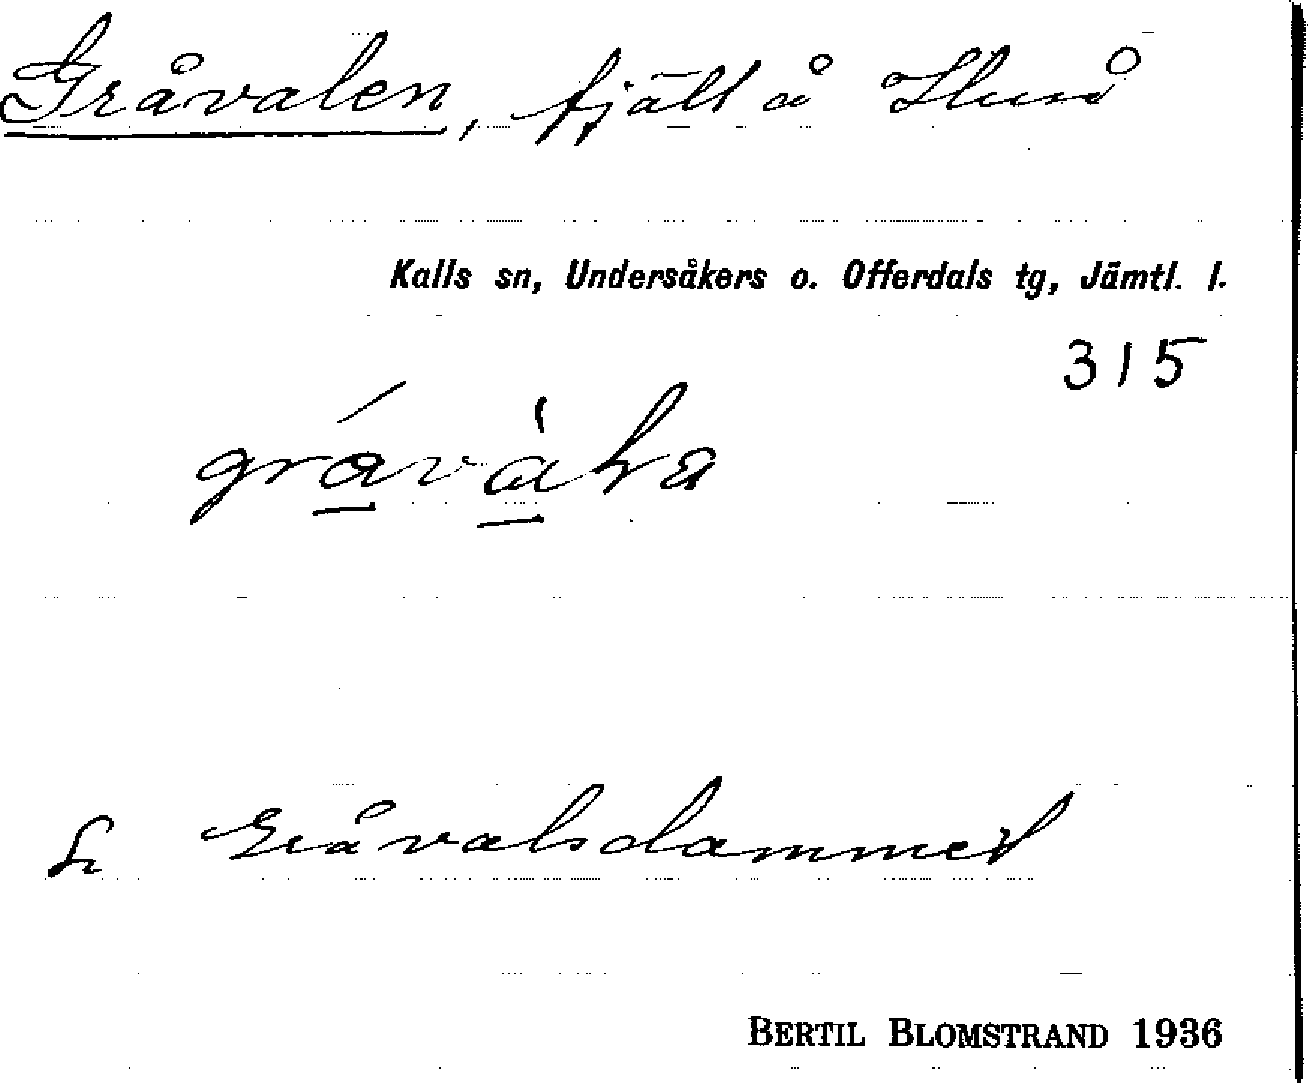 Gråvalen, fjäll å Huså
Kalls sn, Undersåkers o. Offerdals tg, Jämtl. l.
315
Gråvalsdammet
BERTIL BLOMSTRAND 1936